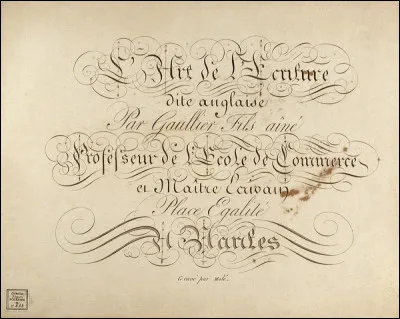 L'Art de l'Ecriture
dite anglaise
Par Gaullier Fils aîné
Professeur de l'Ecole de Commerce
et Maitre Ecrivain
Place Egalité
A Nantes
Gravé par